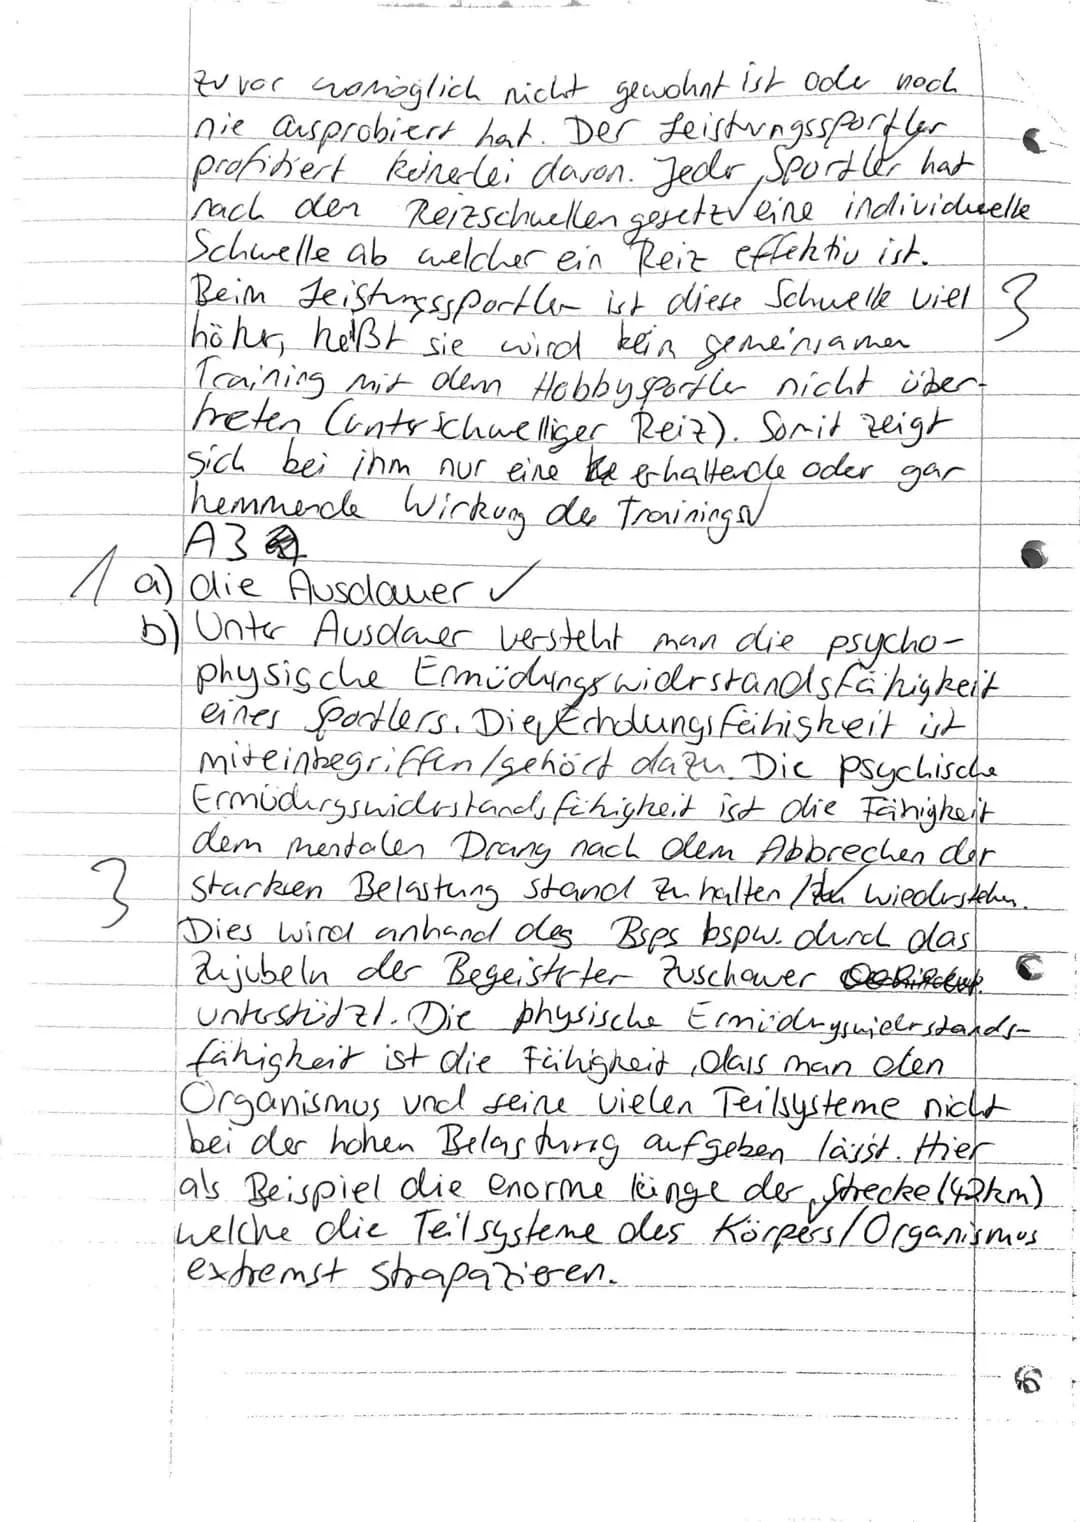 zuvor womöglich nicht gewohnt ist oder noch
nie ausprobiert hat. Der Leistungssportler
profitiert keinerlei davon. Jeder Sportler hat
nach den Reizschwellengesetz √ eine individuelle
Schwelle ab welcher ein Reiz effektiv ist.
Beim Leistungssportler ist diese Schwelle viel 3
höher, heißt sie wird bei gemeinsamen
Training mit dem Hobbysportler nicht über-
treten (unterschwelliger Reiz). Somit zeigt
sich bei ihm nur eine erhaltende oder gar
hemmende Wirkung des Trainings √
A3
1 a) die Ausdauer ✓
b) Unter Ausdauer versteht man die psycho-
physische Ermüdungswiderstandsfähigkeit
eines Sportlers. Die Erholungsfähigkeit ist
miteinbegriffen/gehört dazu. Die psychische
Ermüdungswiderstandsfähigkeit ist die Fähigkeit
dem mentalen Drang nach dem Abbrechen der
3 starken Belastung stand zu halten / zu wiederstehen.
Dies wird anhand des Bsps bspw. durch das
Zujubeln der Begeisterter Zuschauer
unterstützt. Die physische Ermüdungswiderstands-
fähigkeit ist die Fähigkeit, dass man den
Organismus und seine vielen Teilsysteme nicht
bei der hohen Belastung aufgeben lässt. Hier
als Beispiel die enorme länge der Strecke (42km)
welche die Teilsysteme des Körpers/Organismus
extremst strapazieren.